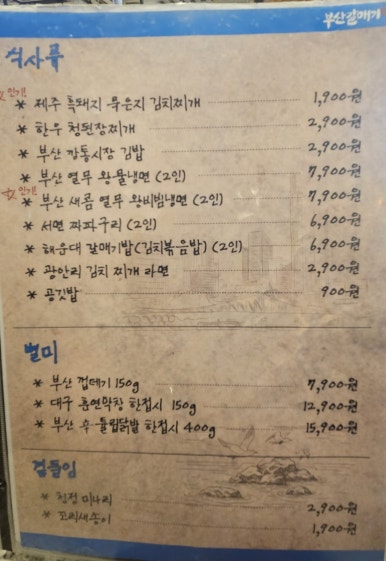 부산갈매기
식사류
인기!
* 제주 흑돼지 묵은지 김치찌개 1,900원
* 한우 청된장찌개 2,900원
* 부산 깡통시장 김밥 2,900원
* 부산 열무 왕물냉면 (2인) 7,900원
인기!
* 부산 새콤 열무 왕비빔냉면 (2인) 7,900원
* 서면 짜파구리 (2인) 6,900원
* 해운대 갈매기밥(김치볶음밥) (2인) 6,900원
* 광안리 김치 찌개 라면 2,900원
* 공깃밥 900원
별미
* 부산 껍데기 150g 7,900원
* 대구 훈연막창 한접시 150g 12,900원
* 부산 후 돌림닭발 한접시 400g 15,900원
곁들임
* 청정 미나리 2,900원
* 꼬리새송이 1,900원